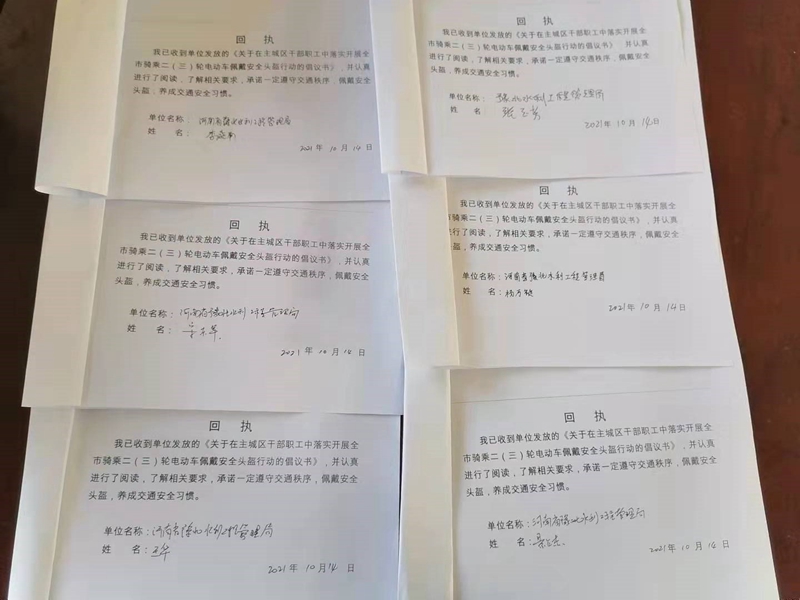 回 执
我已收到单位发放的《关于在主城区干部职工中落实开展全
市骑乘二（三）轮电动车佩戴安全头盔行动的倡议书》，并认真
进行了阅读，了解相关要求，承诺一定遵守交通秩序，佩戴安全
头盔，养成交通安全习惯。
单位名称：河南省豫北水利工程管理局
姓 名：
2021 年 10 月 14 日
回 执
我已收到单位发放的《关于在主城区干部职工中落实开展全
市骑乘二（三）轮电动车佩戴安全头盔行动的倡议书》，并认真
进行了阅读，了解相关要求，承诺一定遵守交通秩序，佩戴安全
头盔，养成交通安全习惯。
单位名称：豫北水利工程管理局
姓 名：
2021 年 10 月 14 日
回 执
我已收到单位发放的《关于在主城区干部职工中落实开展全
市骑乘二（三）轮电动车佩戴安全头盔行动的倡议书》，并认真
进行了阅读，了解相关要求，承诺一定遵守交通秩序，佩戴安全
头盔，养成交通安全习惯。
单位名称：河南省豫北水利工程管理局
姓 名：
2021 年 10 月 14 日
回 执
我已收到单位发放的《关于在主城区干部职工中落实开展全
骑乘二（三）轮电动车佩戴安全头盔行动的倡议书》，并认真
行了阅读，了解相关要求，承诺一定遵守交通秩序，佩戴安全
头盔，养成交通安全习惯。
单位名称：河南省豫北水利工程管理局
姓 名：
2021 年 10 月 14 日
回 执
我已收到单位发放的《关于在主城区干部职工中落实开展全
市骑乘二（三）轮电动车佩戴安全头盔行动的倡议书》，并认真
进行了阅读，了解相关要求，承诺一定遵守交通秩序，佩戴安全
头盔，养成交通安全习惯。
单位名称：河南省豫北水利工程管理局
姓 名：王华
2021 年 10 月 14 日
回 执
我已收到单位发放的《关于在主城区干部职工中落实开展全
市骑乘二（三）轮电动车佩戴安全头盔行动的倡议书》，并认真
进行了阅读，了解相关要求，承诺一定遵守交通秩序，佩戴安全
头盔，养成交通安全习惯。
单位名称：河南省豫北水利工程管理局
姓 名：
2021 年 10 月 14 日